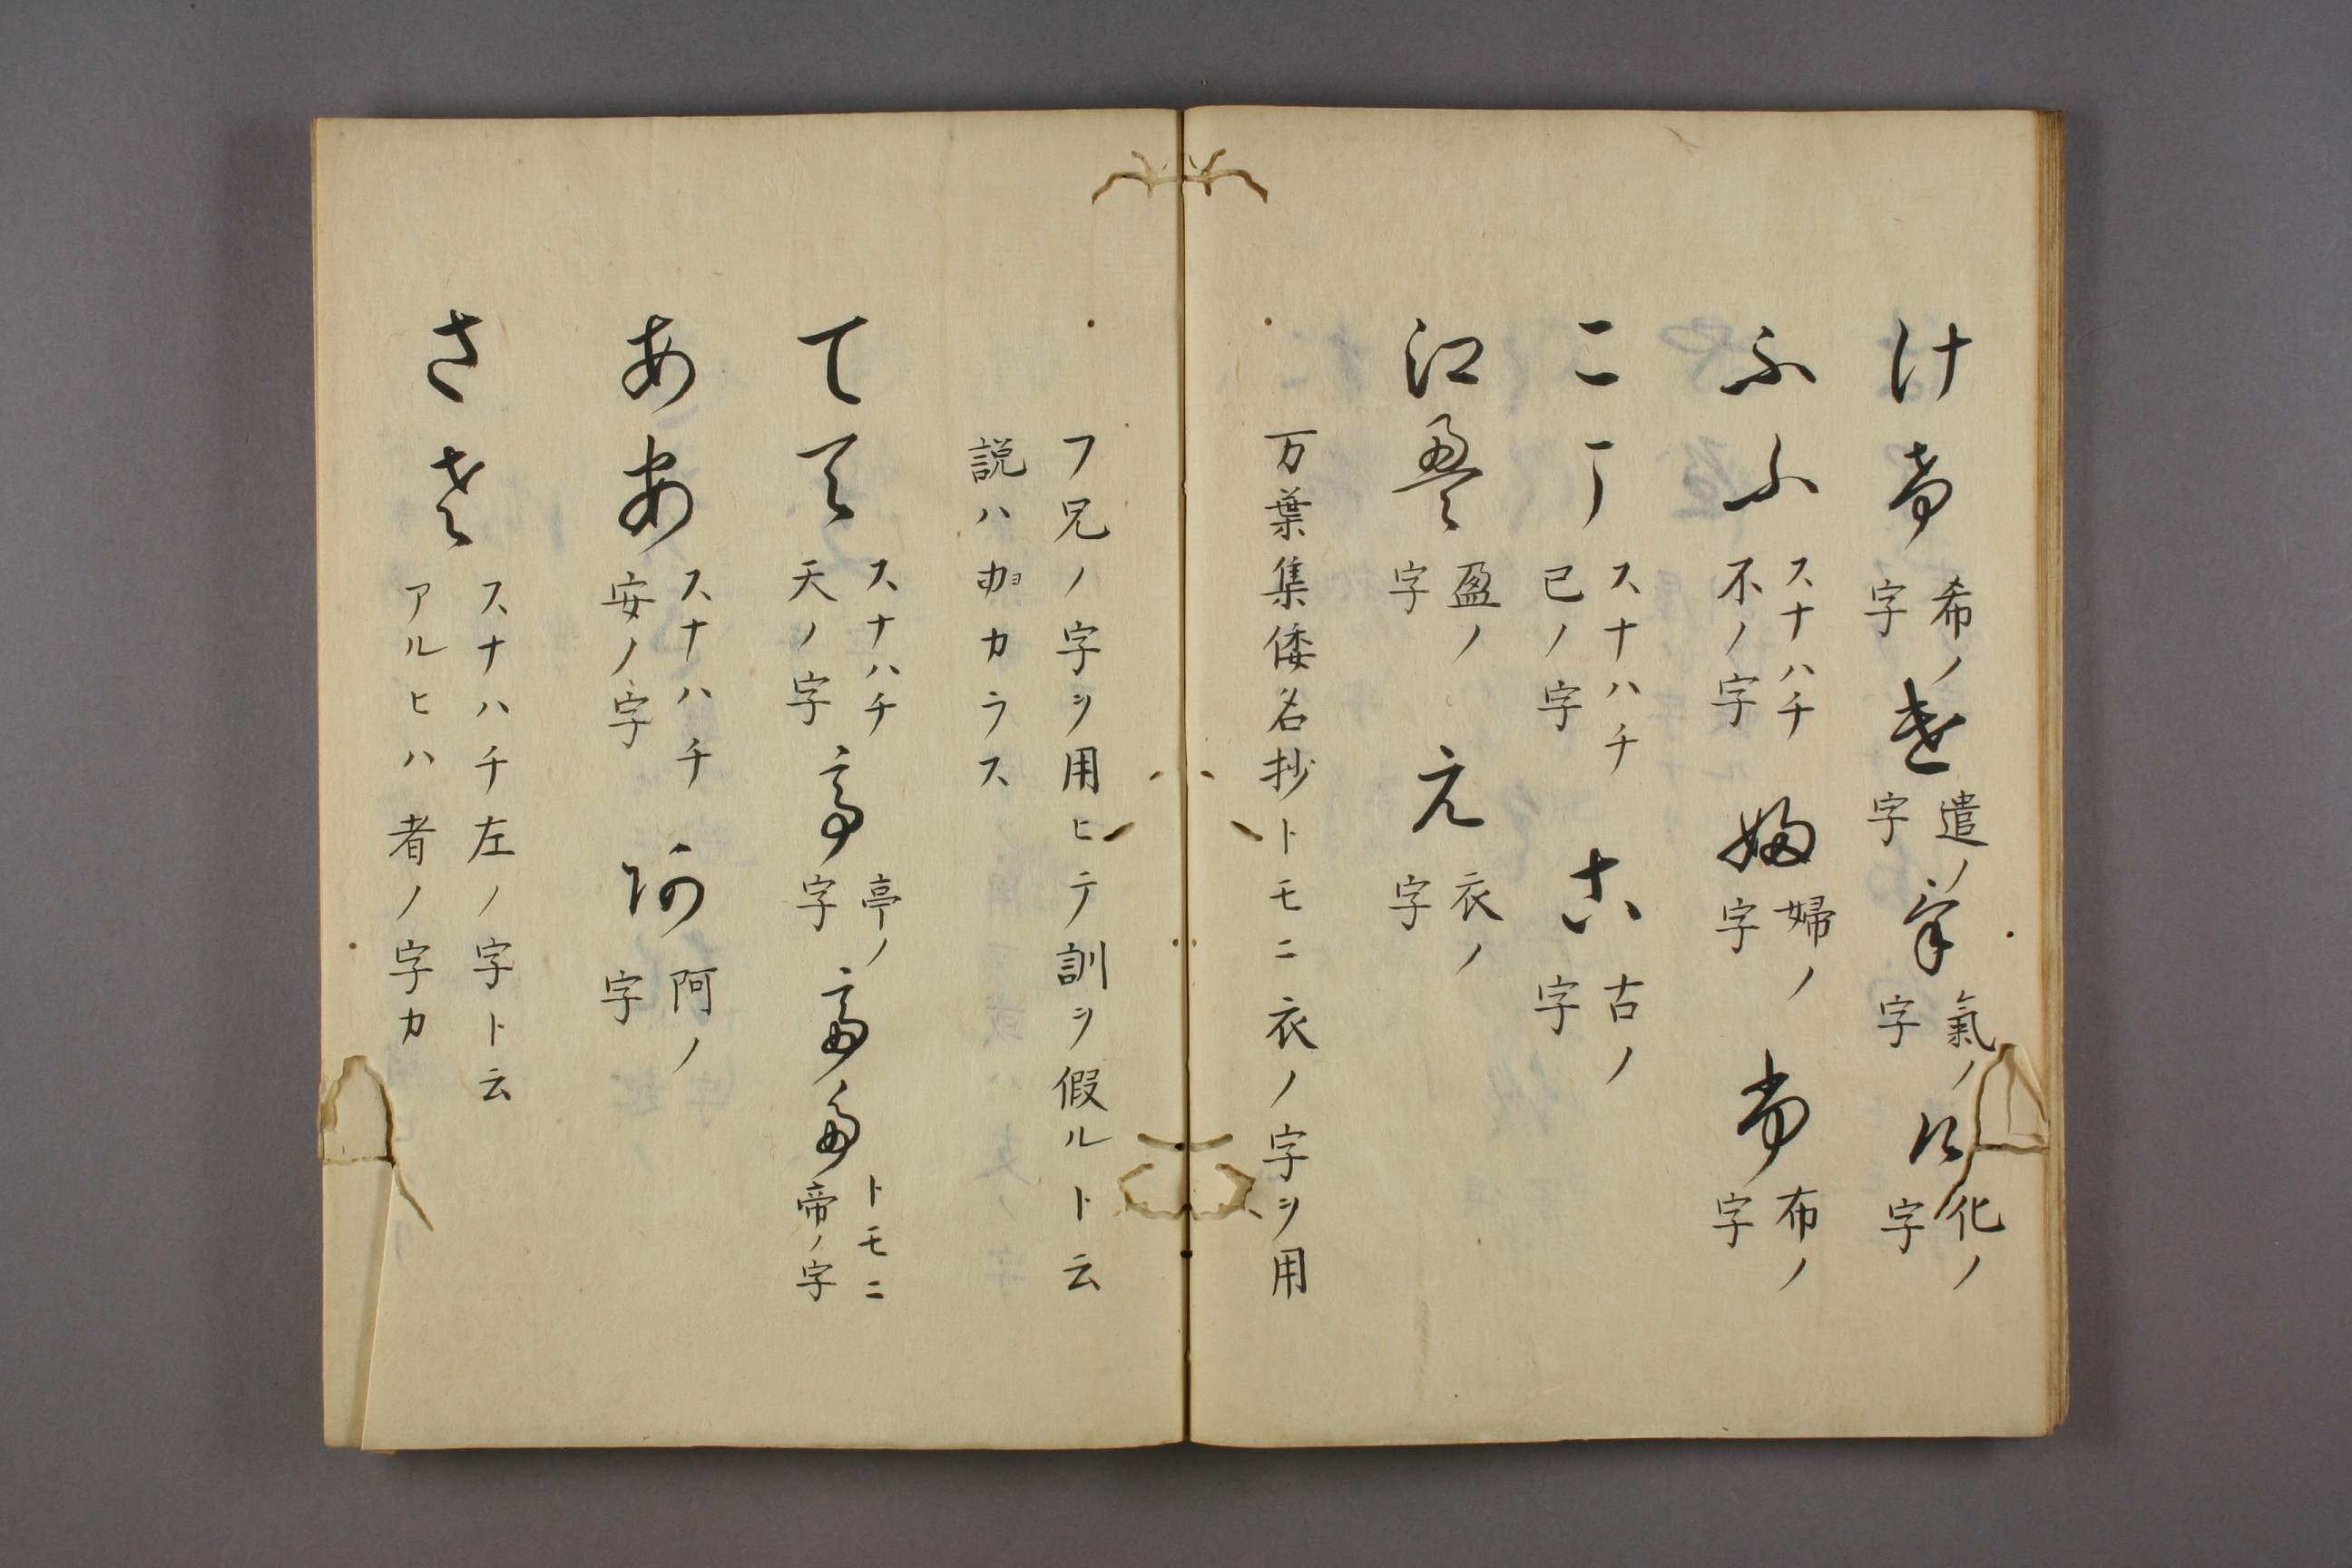 け希 希ノ字 遣 遣ノ字 氣 氣ノ字 化 化ノ字
ふふ スナハチ不ノ字 婦 婦ノ字 布 布ノ字
こ スナハチ已ノ字 古 古ノ字
江盈 盈ノ字 え 衣ノ字
万葉集倭名抄トモニ衣ノ字ヲ用
フ兄ノ字ヲ用ヒテ訓ヲ假ルト云
説ハヨカラス
てて スナハチ天ノ字 亭 亭ノ字 帝帝 トモニ帝ノ字
ああ スナハチ安ノ字 阿 阿ノ字
ささ スナハチ左ノ字ト云アルヒハ者ノ字カ